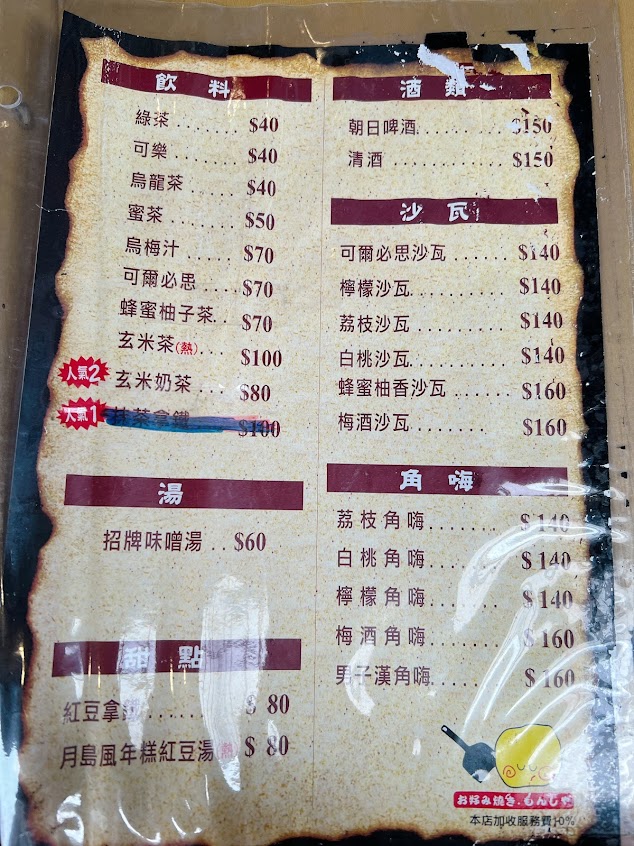 飲料
綠茶 ....... $40
可樂 ....... $40
烏龍茶 ...... $40
蜜茶 ........ $50
烏梅汁 ....... $70
可爾必思 ..... $70
蜂蜜柚子茶.. $70
玄米茶(熱).... $100
人氣2 玄米奶茶 ... $80
人氣1 抹茶拿鐵 $100
湯
招牌味噌湯 .. $60
甜點
紅豆拿 ....... $ 80
月島風年糕紅豆湯(熱) $ 80
酒類
朝日啤酒.......... $150
清酒 ............ $150
沙瓦
可爾必思沙瓦 ....... $140
檸檬沙瓦.......... $140
荔枝沙瓦 ......... $140
白桃沙瓦.......... $140
蜂蜜柚香沙瓦 ...... $160
梅酒沙瓦 ......... $160
角嗨
荔枝角嗨....... $ 140
白桃角嗨....... $ 140
檸檬角嗨....... $ 140
梅酒角嗨....... $ 160
男子漢角嗨...... $ 160
お好み焼き.もんじゃ
本店加收服務費10%